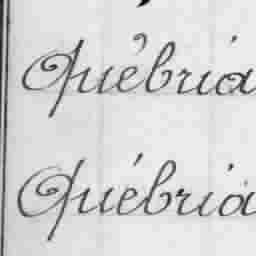 Québria
Québria